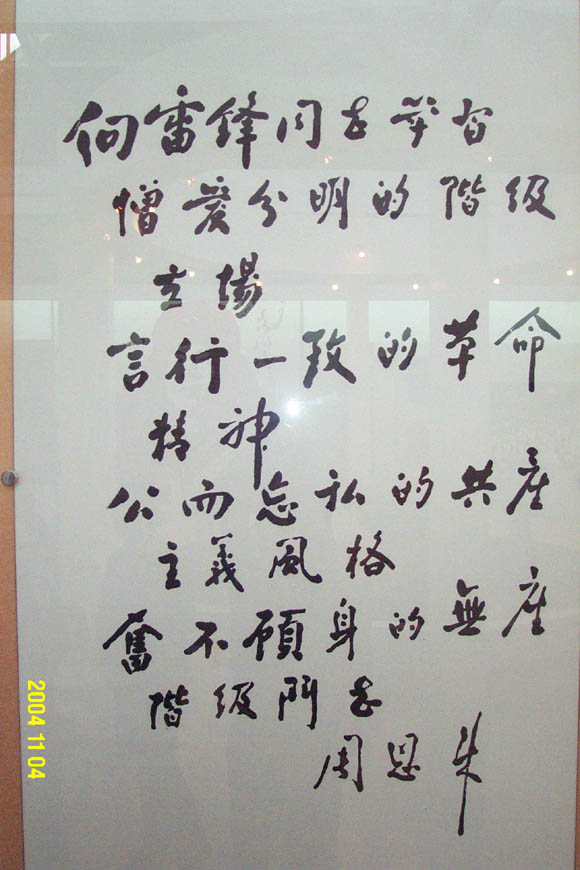 向雷锋同志学習
憎爱分明的階级
立場
言行一致的革命
精神
公而忘私的共産
主義風格
奮不顧身的無産
階级鬥志
周恩来
2004 11 04